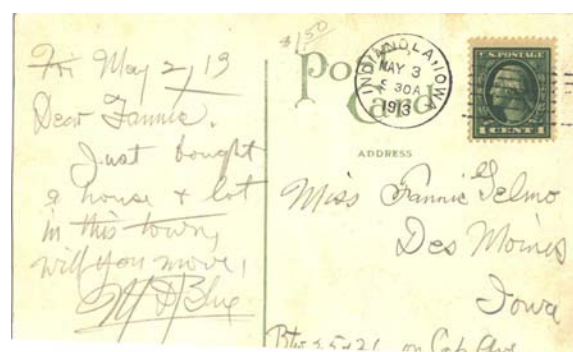 $1.50
Fri May 2, 13
Dear Fannie,
Just bought
a house & lot
in this town,
will you move,
Post
Card
INDIANOLA, IOWA
MAY 3
5 30A
1913
U.S. POSTAGE
1 CENT 1
ADDRESS
Miss Fannie
Des Moines
Iowa
on Cap Ave